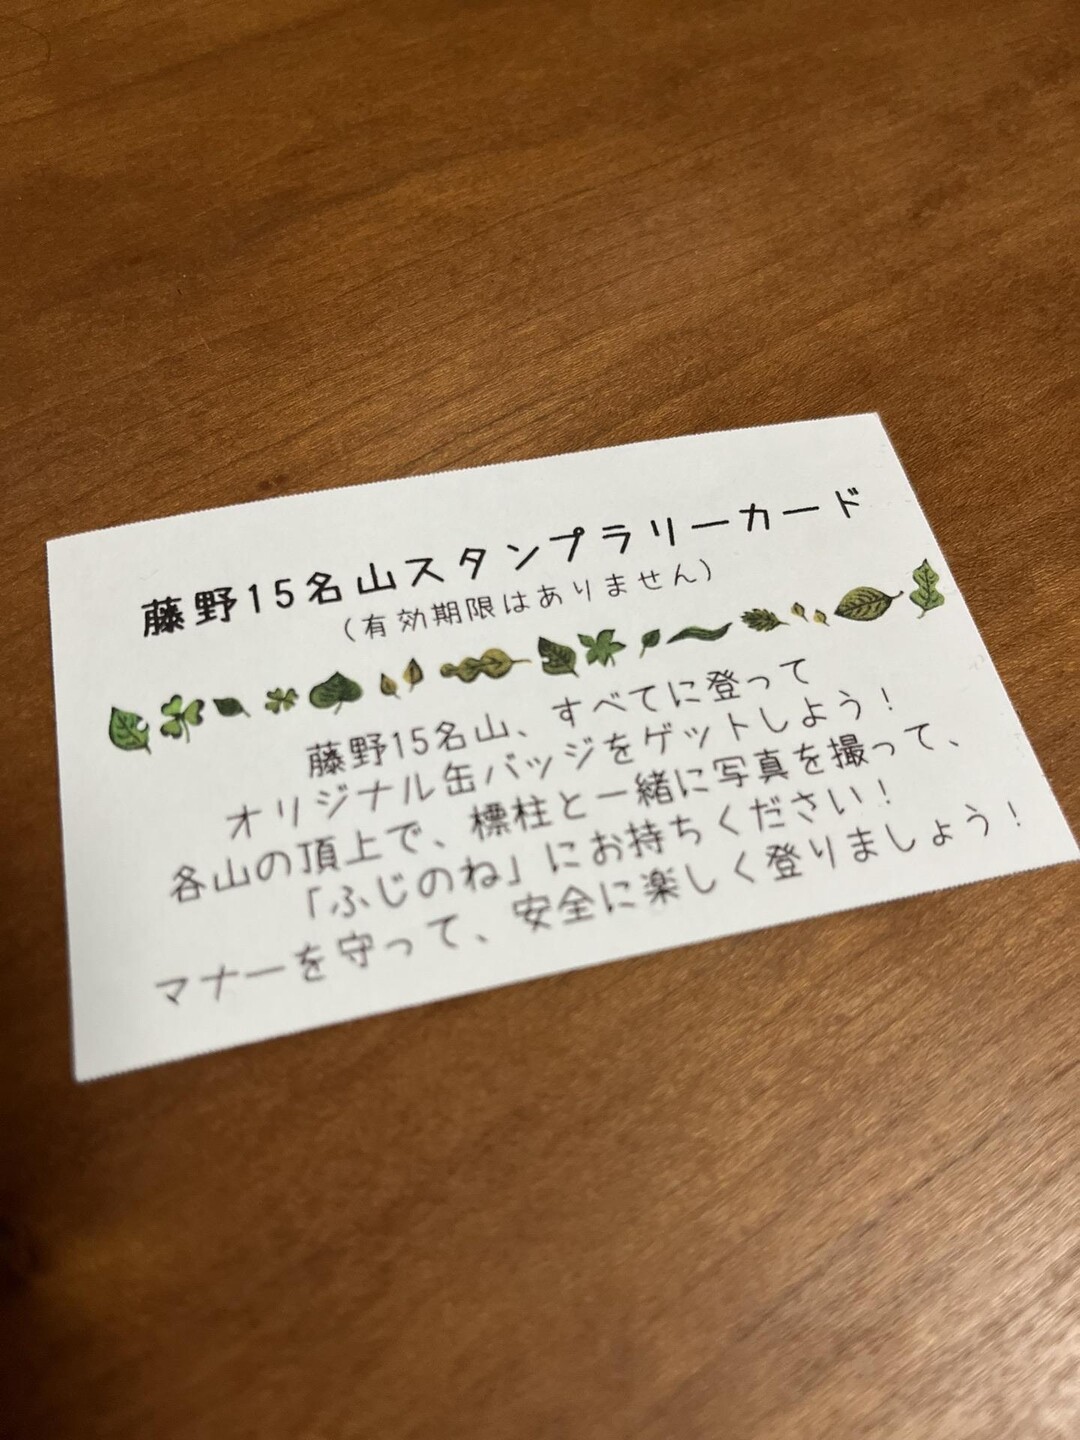 藤野15名山スタンプラリーカード
(有効期限はありません)
藤野15名山、すべてに登って
オリジナル缶バッジをゲットしよう!
各山の頂上で、標柱と一緒に写真を撮って、
「ふじのね」にお持ちください!
マナーを守って、安全に楽しく登りましょう!